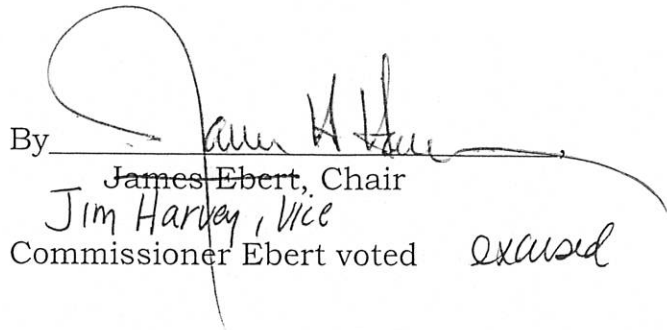 By James H Harvey,
James Ebert, Chair
Jim Harvey, Vice
Commissioner Ebert voted excused